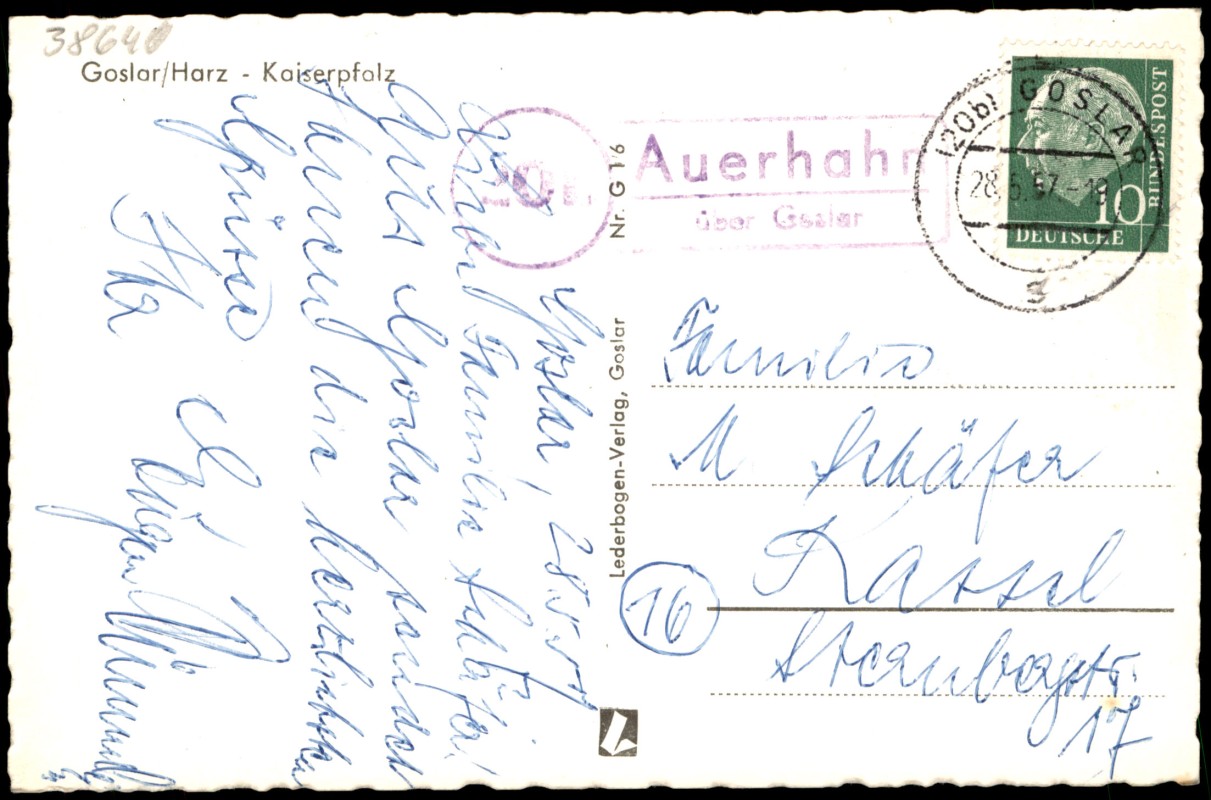 38640
Goslar/Harz - Kaiserpfalz
Goslar, 28.5.57
Familie Schäfer!
Aus Goslar sendet
Ihnen die herzlichsten
Grüsse
Ihr
Eugen
Nr. G 16
Lederbogen-Verlag, Goslar
Auerhahn
über Goslar
(20b) GOSLAR
28.5.57.-19
g
BUNDESPOST
10
DEUTSCHE
Familie
M. Schäfer
16
Kassel
Sternbergstr.
17